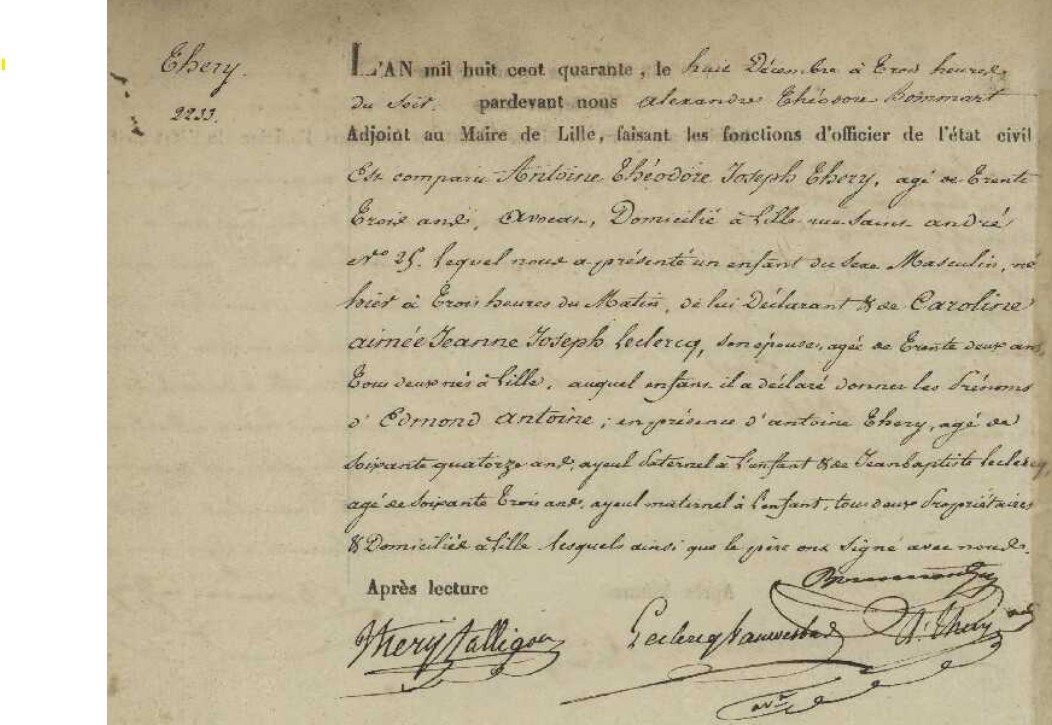 Thery.
2233.
L'AN mil huit cent quarante, le huit Décembre à Trois heures
du Soir. pardevant nous Alexandre Théodore Bommart
Adjoint au Maire de Lille, faisant les fonctions d'officier de l'état civil
Est comparu Antoine Théodore Joseph Thery, agé de Trente
Trois ans, Avocat, Domicilié à Lille rue Saint André
No 25. lequel nous a présenté un enfant du Sexe Masculin, né
hier à Trois heures du Matin, de lui Déclarant & de Caroline
aimée Jeanne Joseph Leclercq, son épouse, agée de Trente deux ans,
Tous deux nés à Lille, auquel enfant il a déclaré donner les Prénoms
d'Edmond Antoine ; en présence d'antoine Thery, agé de
Soixante quatorze ans, ayeul Paternel à l'enfant & de Jean baptiste Leclercq,
agé de Soixante Trois ans, ayeul maternel à l'enfant, tous deux Propriétaires
& Domiciliés à Lille lesquels ainsi que le père ont Signé avec nous.
Après lecture
Bommart
Thery
Leclercq
Thery